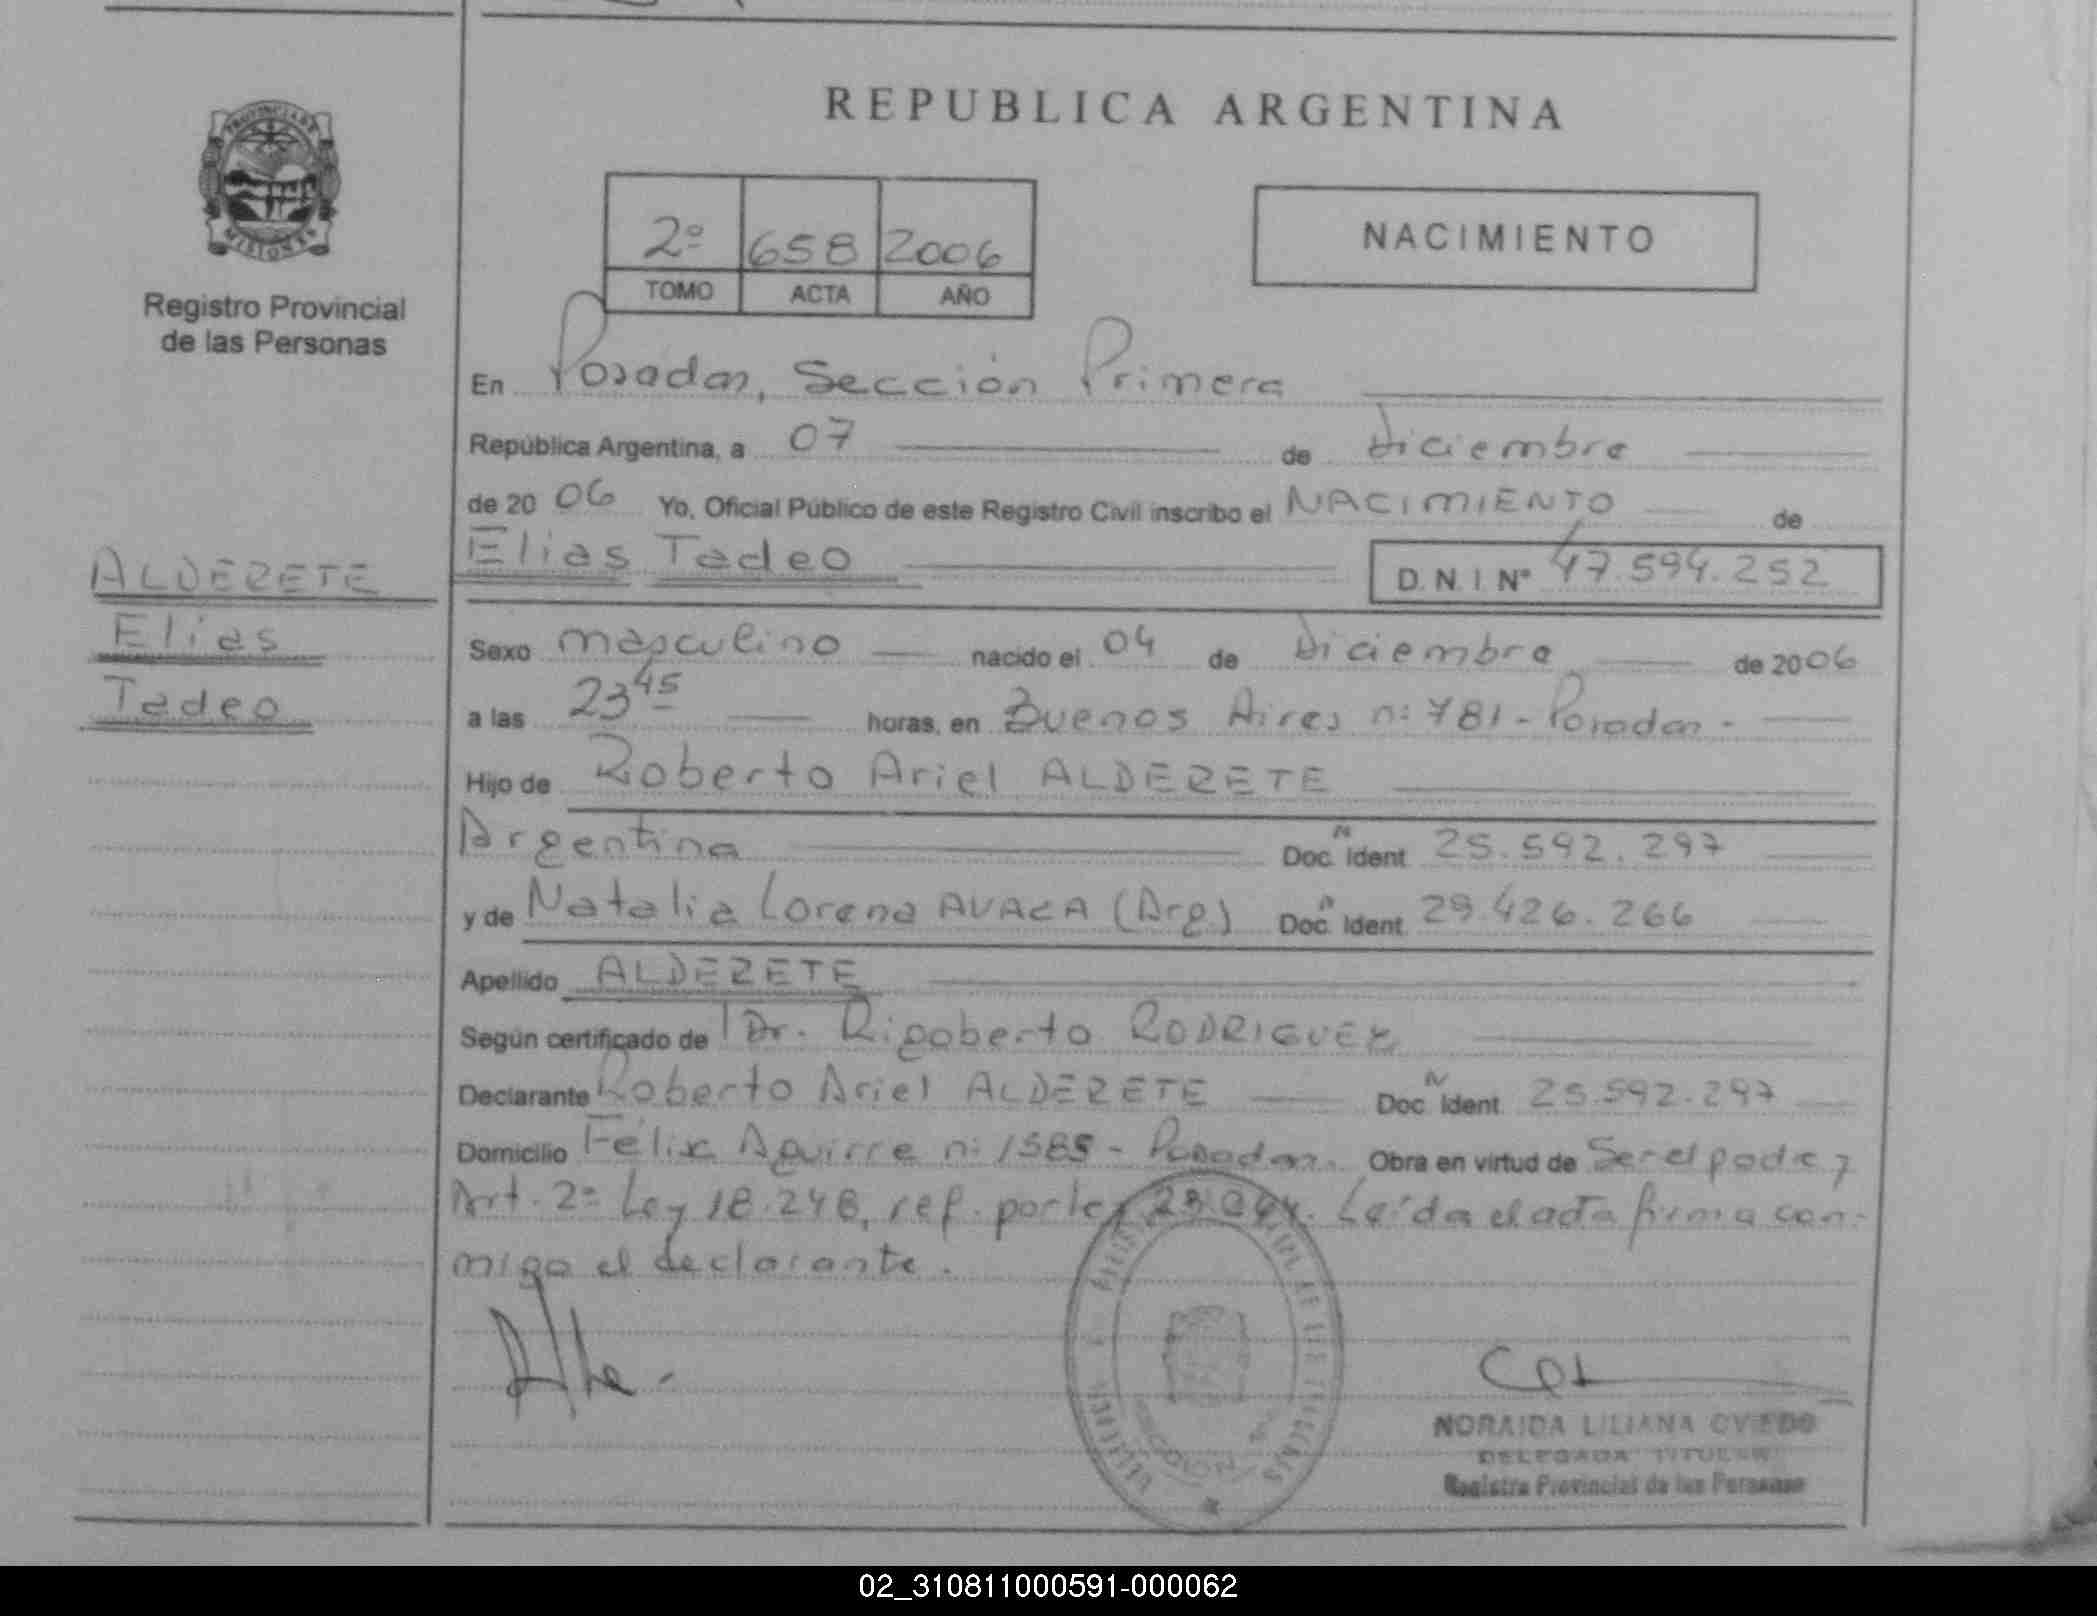 REPUBLICA ARGENTINA
PROVINCIA DE
MISIONES
Registro Provincial
de las Personas
2º 658 2006
TOMO ACTA AÑO
NACIMIENTO
En Posadas, Sección Primera
República Argentina, a 07 de diciembre
de 2006 Yo, Oficial Público de este Registro Civil inscribo el NACIMIENTO de
Elias Tadeo D.N.I. Nº 47.594.252
ALDERETE
Elias
Tadeo
Sexo masculino nacido el 04 de diciembre de 2006
a las 23 45 horas, en Buenos Aires nº 781 - Posadas -
Hijo de Roberto Ariel ALDERETE
Argentina Doc. Ident. 25.592.297
y de Natalia Lorena (Arg) Doc. Ident. 29.426.266
Apellido ALDERETE
Según certificado de Dr. Rigoberto RODRIGUEZ
Declarante Roberto Ariel ALDERETE Doc. Ident. 25.592.297
Domicilio Félix Aguirre nº 1585 - Posadas. Obra en virtud de Ser el padre y
Art. 2º Ley 18.248, ref. por ley Leída el acta firma con-
migo el declarante.
NORAIDA LILIANA OVIEDO
DELEGADA TITULAR
Registro Provincial de las Personas
02_310811000591-000062